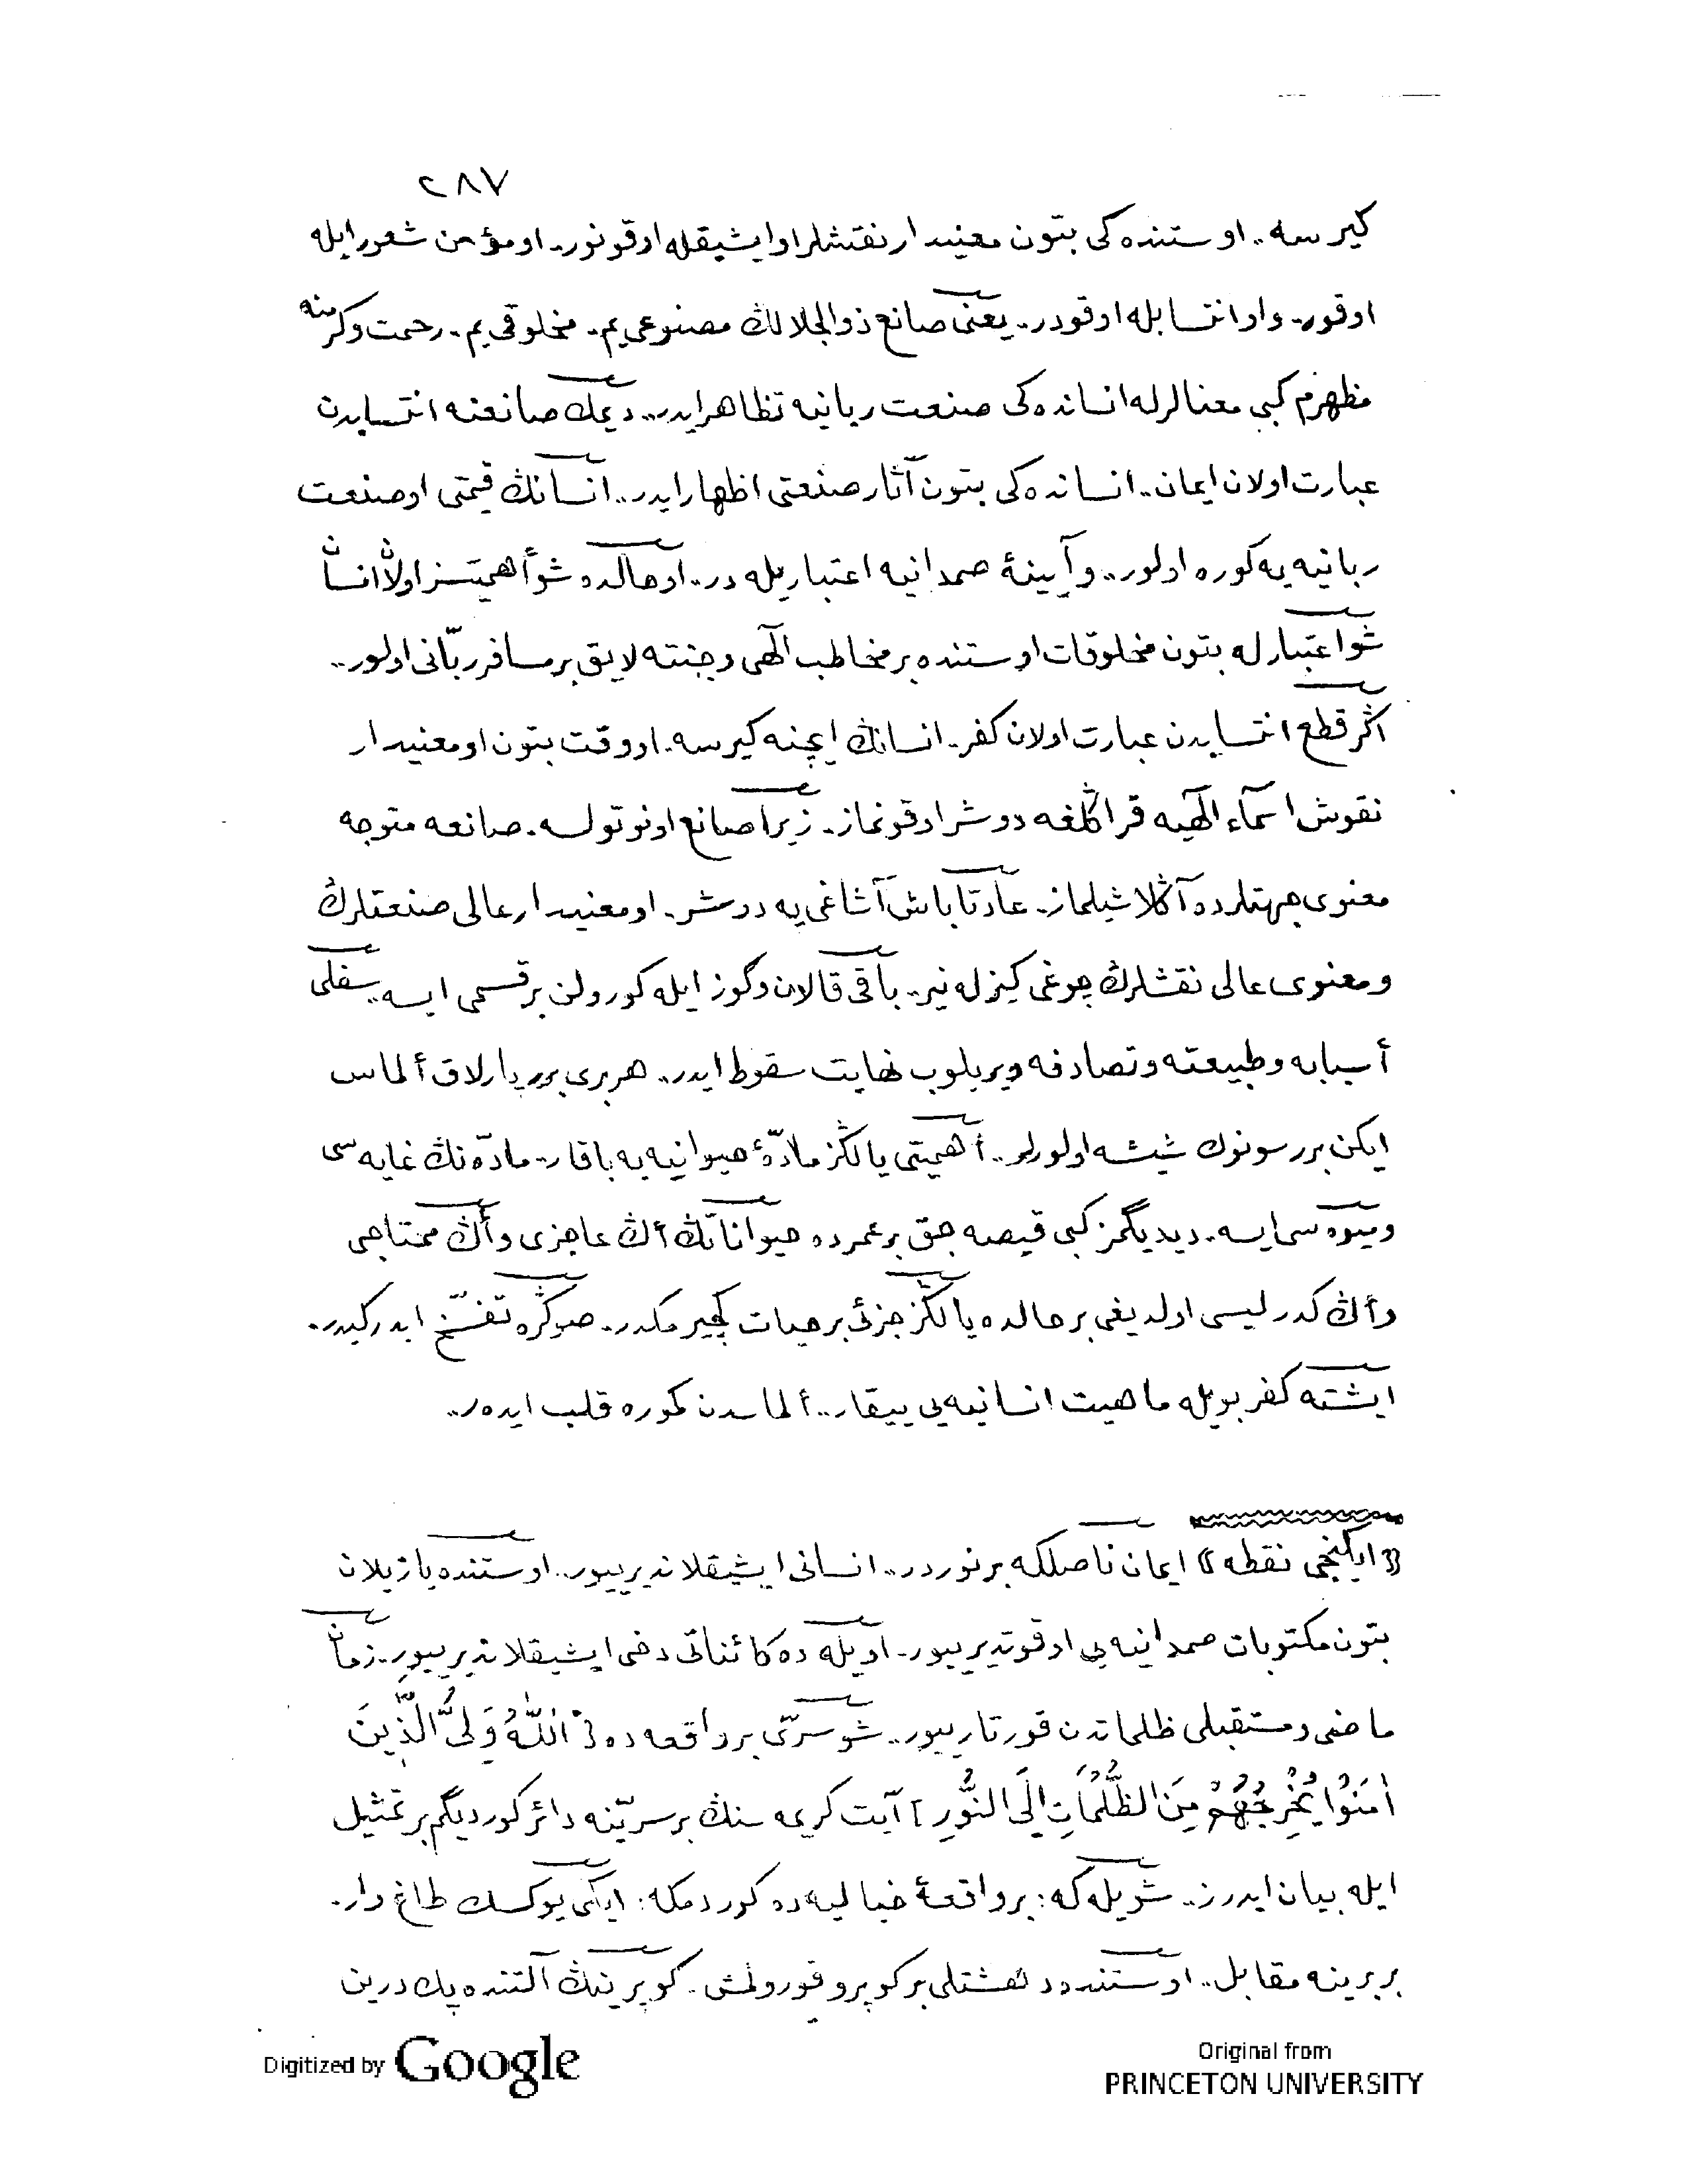 ٢٨٧
كيرسه.. اوستنده كى بتون معنيدار نقشلر او ايشيقله اوقونور. او مؤمن شعور ايله
اوقور. و او انتسابله اوقودر. يعنى صانع ذوالجلالڭ مصنوعى يم. مخلوقى يم. رحمت و كرمنه
مظهرم كبى معنالرله انسانده كى صنعت ربانيه تظاهر ايدر.. ديمك صانعنه انتسابدن
عبارت اولان ايمان.. انسانده كى بتون آثار صنعتى اظهار ايدر.. انسانڭ قيمتى او صنعت
ربانيه يه كوره اولور.. و آيينهٔ صمدانيه اعتباريله در.. او حالده شو أهميتسز اولان انسان
شو اعتبارله بتون مخلوقات اوستنده بر مخاطب الٓهى و جنته لايق بر مسافر ربّانى اولور..
اڭر قطع انتسابدن عبارت اولان كفر. انسانڭ ايچنه كيرسه. او وقت بتون او معنيدار
نقوش اسمآء الٓهيه قراڭلغه دوشر اوقونماز. زيرا صانع اونوتولسه. صانعه متوجه
معنوى جهتلرده آڭلاشيلماز. عادتا باش آشاغى يه دوشر. او معنيدار عالى صنعتلرڭ
و معنوى عالى نقشلرڭ چوغى كيزله نير. باقى قالان و گوز ايله كورولن بر قسمى ايسه. سفلى
أسبابه و طبيعته و تصادفه ويريلوب نهايت سقوط ايدر. هر برى برر پارلاق ألماس
ايكن برر سونوك شيشه اولورلر.. أهميتى يالڭز مادّهٔ حيوانيه يه باقار. مادّه نڭ غايه سى
و ميوه سى ايسه. ديديگمز كبى قيصه جق بر عمرده حيواناتڭ أڭ عاجزى و أڭ محتاجى
و أڭ كدرليسى اولديغى بر حالده يالڭز جزئى بر حيات كچيرمكدر. صوڭره تفسّخ ايدر كيدر.
ايشته كفر بويله ماهيت انسانيه يى ييقار.. ألماسدن كموره قلب ايده ر..
«ايكنجى نقطه» ايمان ناصلكه بر نوردر.. انسانى ايشيقلانديرييور.. اوستنده يازيلان
بتون مكتوبات صمدانيه يى اوقوتديرييور. اويله ده كائناتى دخى ايشيقلانديرييور. زمان
ماضى و مستقبلى ظلماتدن قورتارييور.. شو سرّى بر واقعه ده [اَللّٰهُ وَلِىُّ الَّذِينَ
اٰمَنُوا يُخْرِجُهُمْ مِنَ الظُّلُمَاتِ اِلَى النُّورِ] آيت كريمه سنڭ بر سرّينه دائر كورديگم بر تمثيل
ايله بيان ايدرز.. شويله كه: بر واقعهٔ خياليه ده كوردمكه: ايكى يوكسك طاغ وار.
بربرينه مقابل.. اوستنده دهشتلى بر كوپرو قورولمش. كوپرينڭ آلتنده پك درين
Digitized by Google
Original from
PRINCETON UNIVERSITY